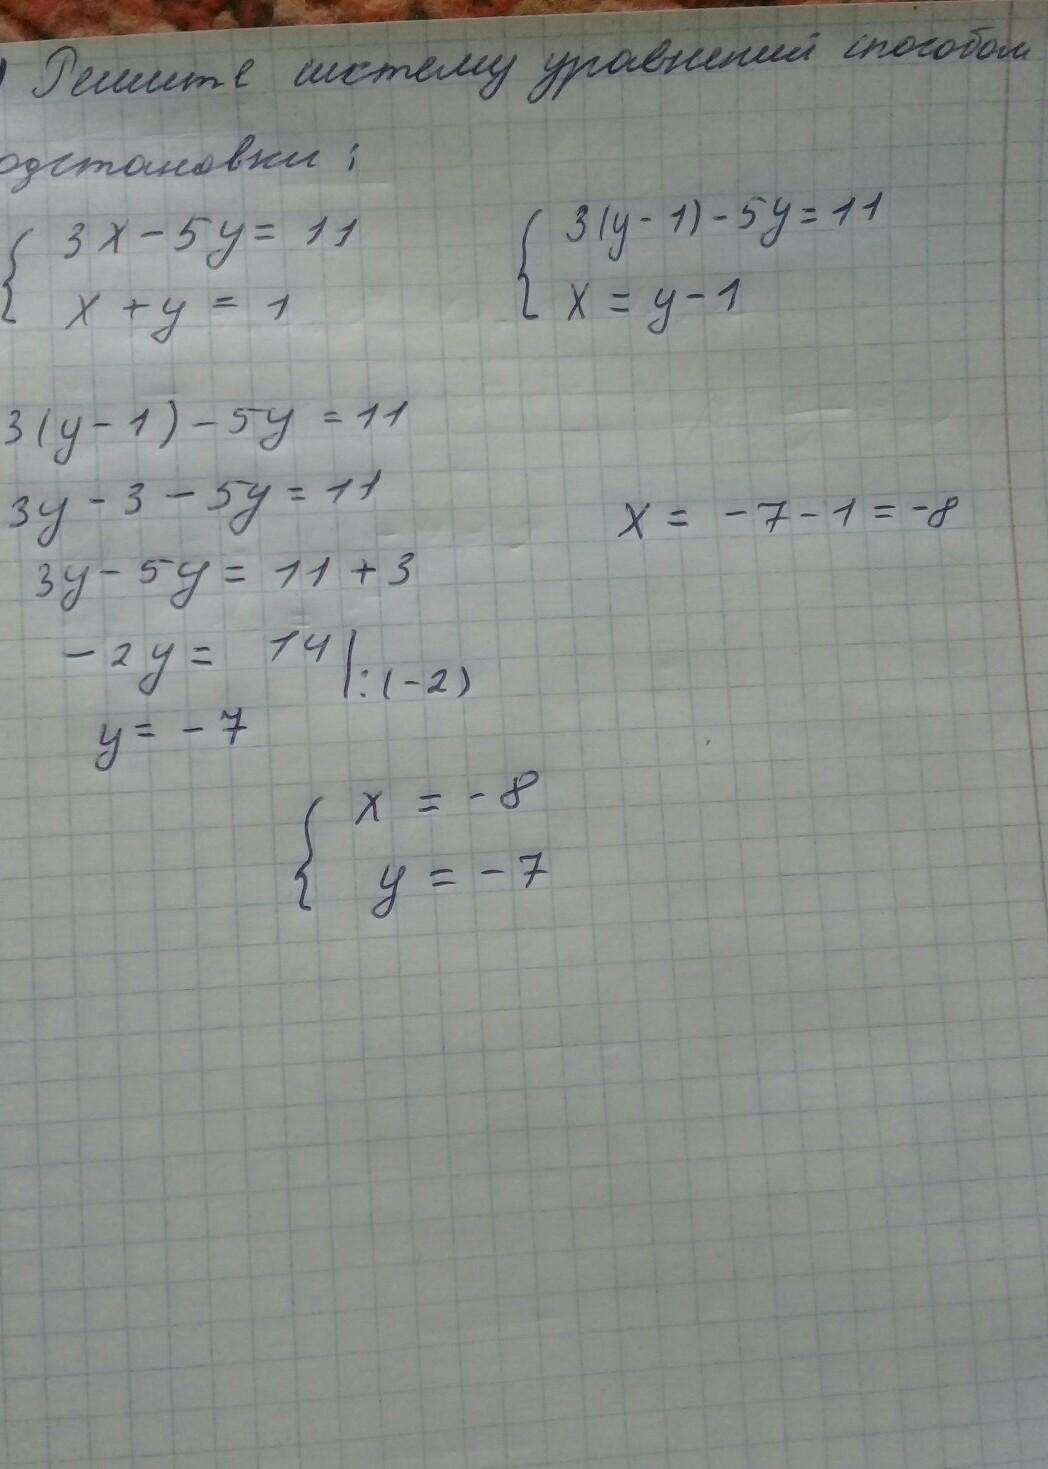 ) Решите систему уравнений способом
одстановки:
{ 3x - 5y = 11
x + y = 1
{ 3(y - 1) - 5y = 11
x = y - 1
3(y - 1) - 5y = 11
3y - 3 - 5y = 11
3y - 5y = 11 + 3
- 2y = 14 | : (-2)
y = - 7
x = - 7 - 1 = -8
{ x = - 8
y = - 7